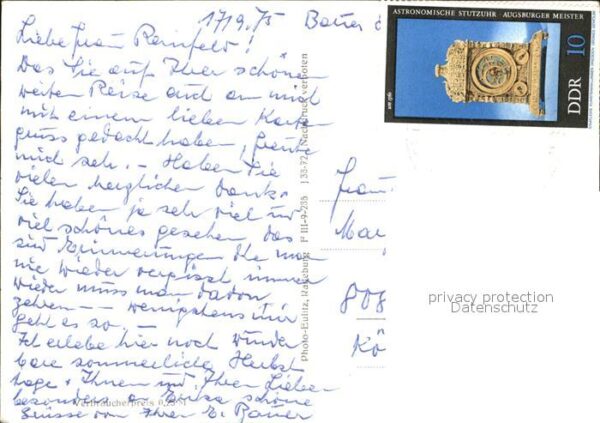 17.9.75 Bauer
Liebe Frau Reinfeld!
Das Sie auf Ihrer schönen
weiten Reise auch an mich
mit einem lieben Karten
gruss gedacht haben, freute
mich sehr. – Haben Sie
vielen herzlichen Dank.
Sie haben ja sehr viel und
viel schönes gesehen, das
sind Erinnerungen die man
nie wieder vergisst, immer
wieder muss man davon
zehren –– wenigstens mir
geht es so. –
Ich erlebe hier noch wunder
bare sommerliche Herbst
tage + Ihnen und Ihren Lieben
besonders schöne
Grüsse von Ihrer E. Bauer
Verbraucherpreis 0,25 M
Photo-Eulitz, Radeburg F III-9-235 138-72, Nachdruck verboten
ASTRONOMISCHE STUTZUHR · AUGSBURGER MEISTER
DDR 10
Frau
808
Kö
privacy protection
Datenschutz